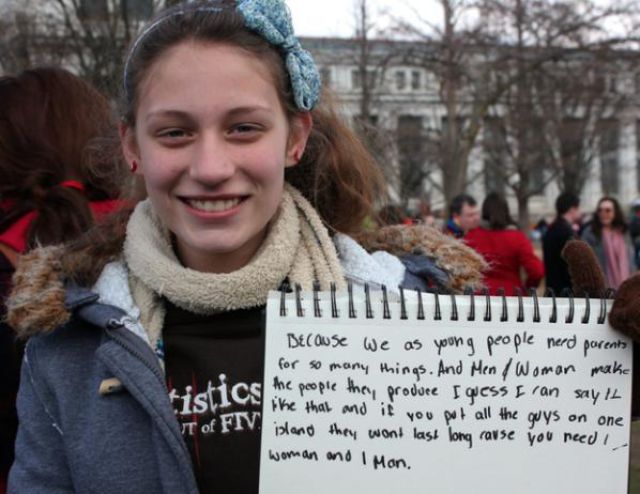 tistics
UT of FIV
Because we as young people need parents
for so many things. And Men / Woman make
the people they produce I guess I can say it
like that and if you put all the guys on one
island they wont last long cause you need 1
woman and 1 Man.